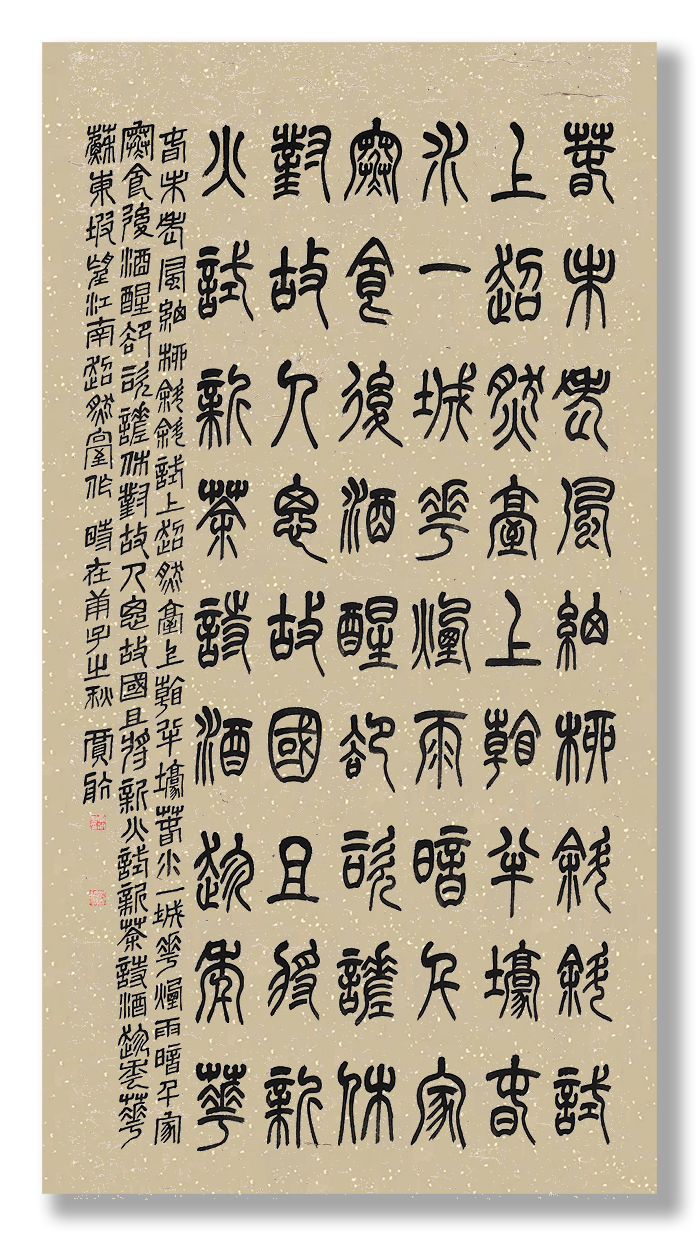 春未老風細柳斜斜試
上超然臺上看半壕春
水一城花煙雨暗千家
寒食後酒醒卻咨嗟休
對故人思故國且將新
火試新茶詩酒趁年華
春未老風細柳斜斜試上超然臺上看半壕春水一城花煙雨暗千家
寒食後酒醒卻咨嗟休對故人思故國且將新火試新茶詩酒趁年華
蘇東坡望江南超然臺作 時在庚子之秋